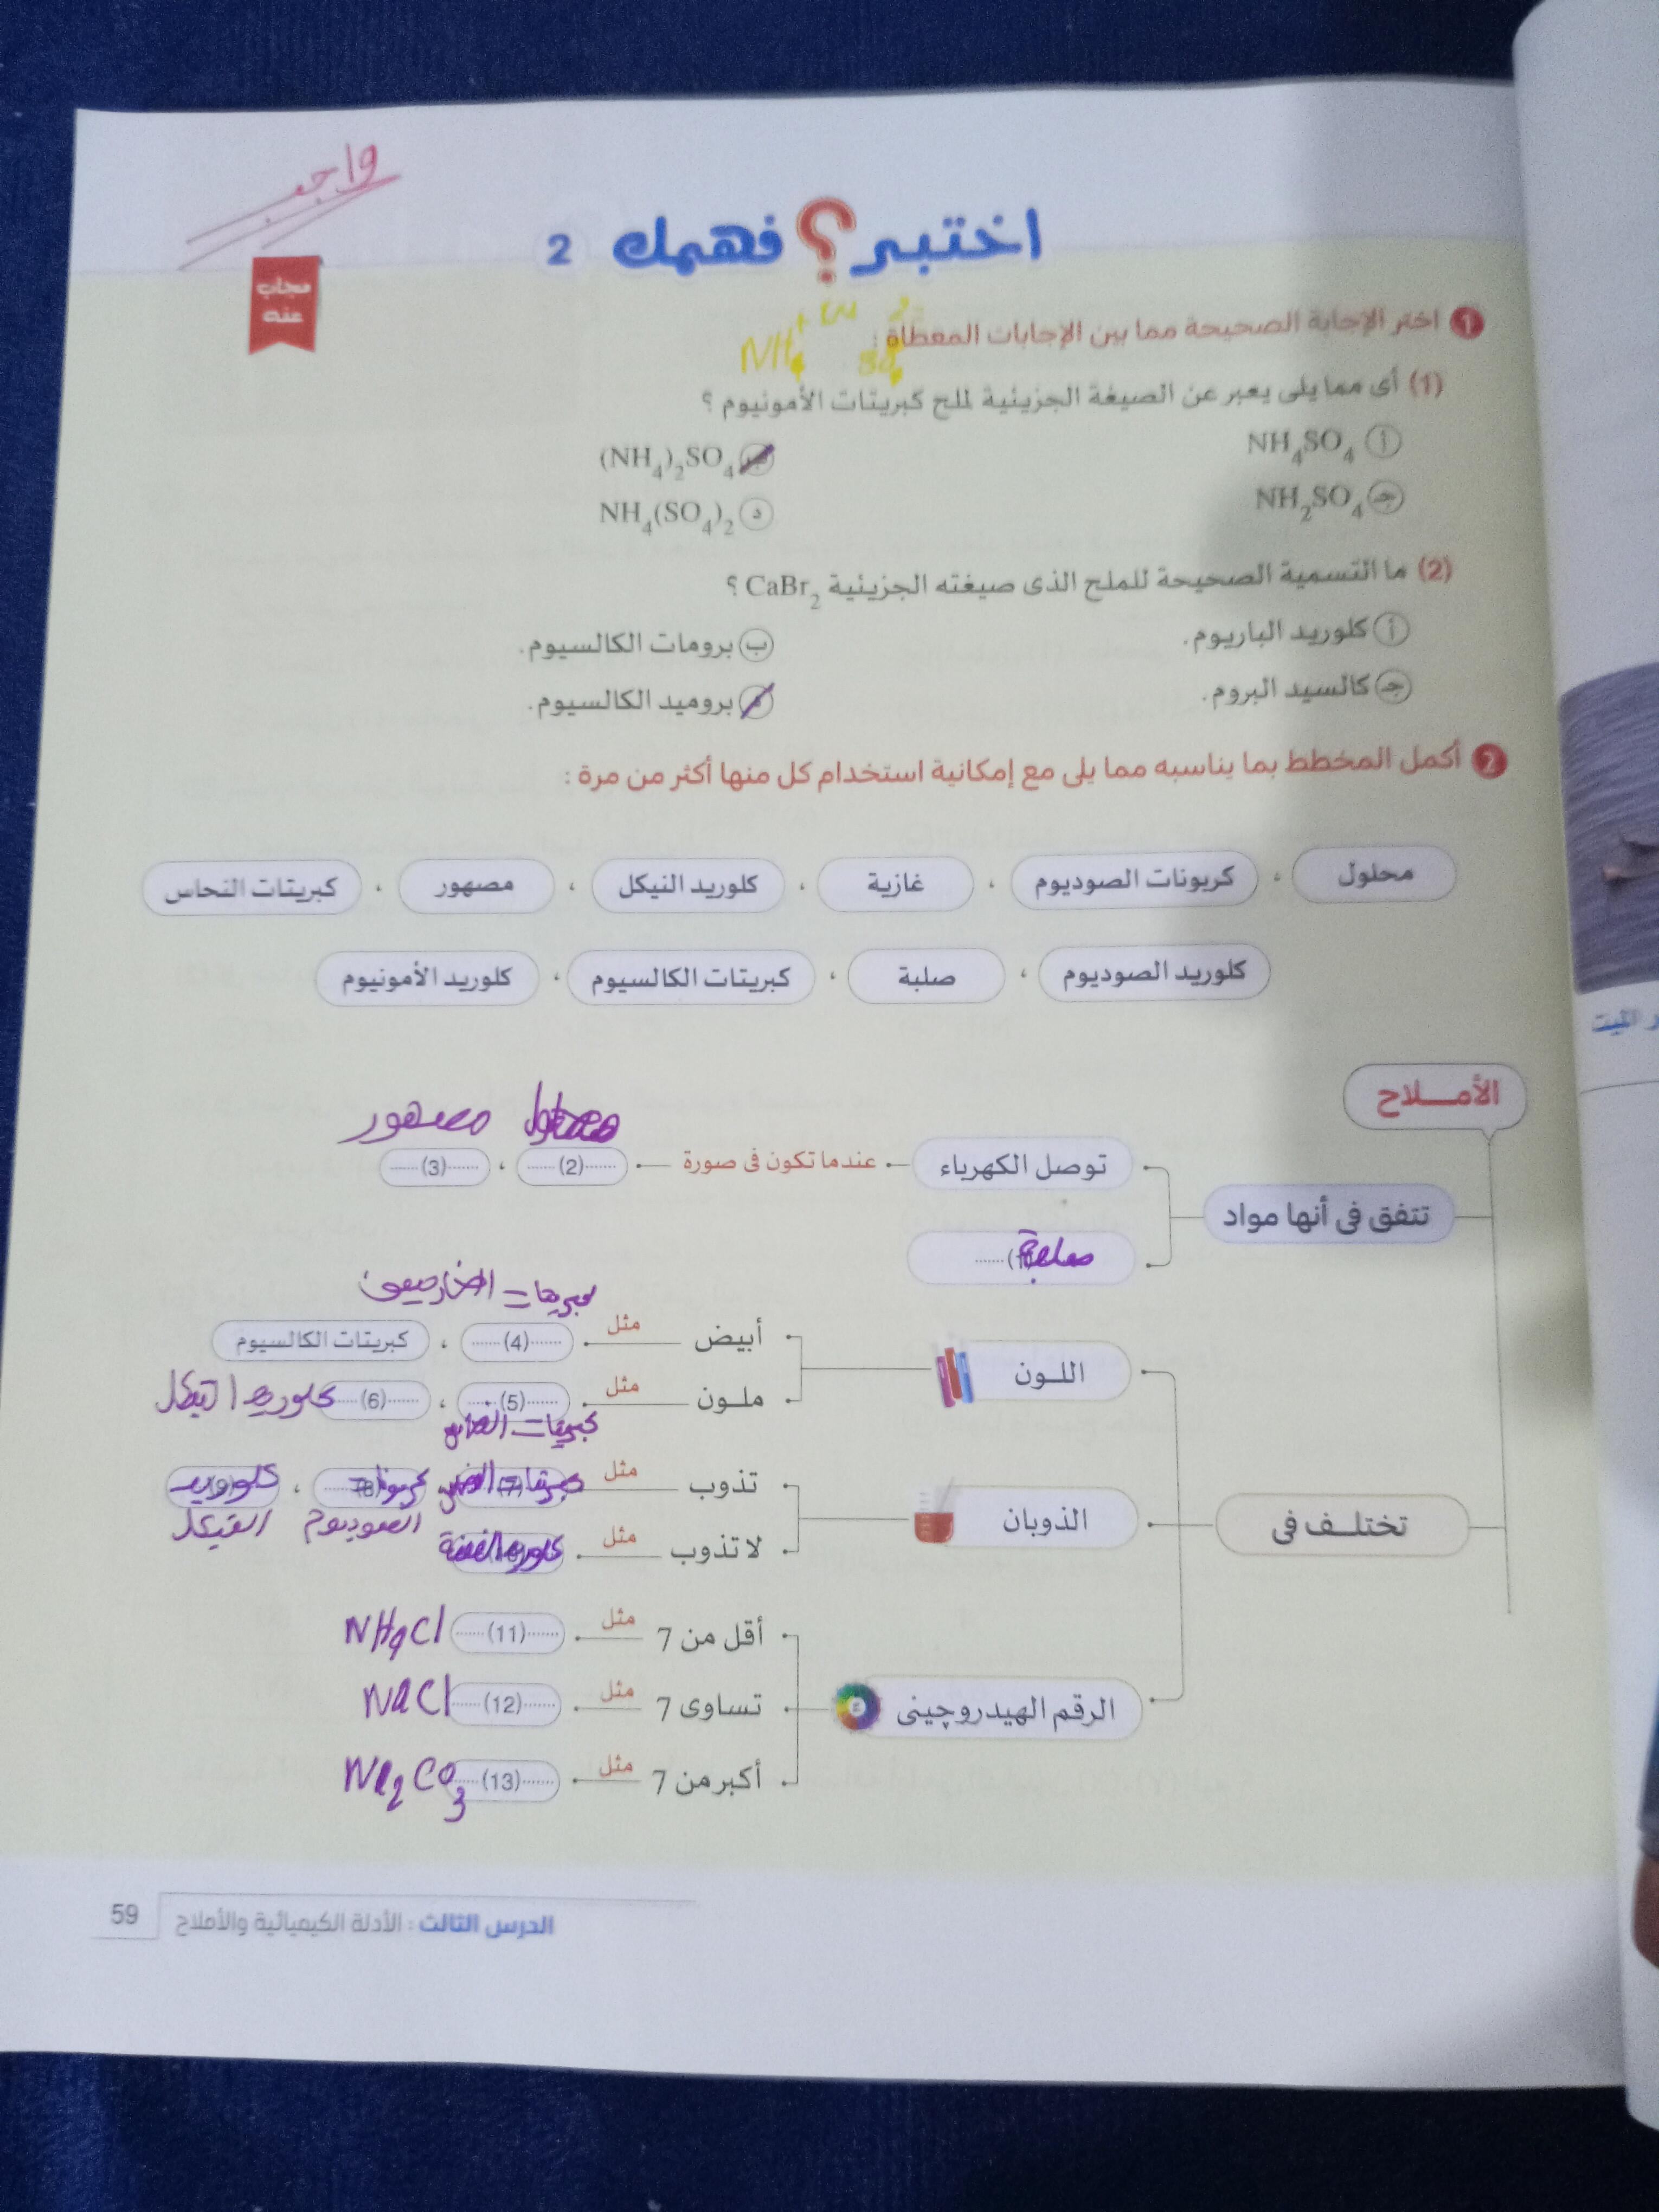 واجب
اختبر ؟ فهمك 2
مجاب
عنه
1 اختر الإجابة الصحيحة مما بين الإجابات المعطاة :
NH4+ SO4 2-
(1) أى مما يلى يعبر عن الصيغة الجزيئية لملح كبريتات الأمونيوم ؟
أ NH4SO4
ب (NH4)2SO4
جـ NH2SO4
د NH4(SO4)2
(2) ما التسمية الصحيحة للملح الذى صيغته الجزيئية CaBr2 ؟
أ كلوريد الباريوم.
ب برومات الكالسيوم.
جـ كالسيد البروم.
د بروميد الكالسيوم.
2 أكمل المخطط بما يناسبه مما يلى مع إمكانية استخدام كل منها أكثر من مرة :
محلول ، كربونات الصوديوم ، غازية ، كلوريد النيكل ، مصهور ، كبريتات النحاس
كلوريد الصوديوم ، صلبة ، كبريتات الكالسيوم ، كلوريد الأمونيوم
الأمــــلاح
محلول مصهور
توصل الكهرباء عندما تكون فى صورة (2) ، (3)
تتفق فى أنها مواد
صلبة (1)
أبيض مثل (4) ، كبريتات الكالسيوم
اللــون
ملــون مثل (5) ، (6) كلوريد النيكل
كبريتات النحاس
تذوب مثل (7) كبريتات النحاس ، (8) كربونات ، كلوريد
الصوديوم النيكل
الذوبان
تختلــف فى
لا تذوب مثل كلوريد الفضة
أقل من 7 مثل (11) NH4Cl
تساوى 7 مثل (12) NaCl
الرقم الهيدروچينى
أكبر من 7 مثل (13) Na2CO3
الدرس الثالث : الأدلة الكيميائية والأملاح 59
ر الميت